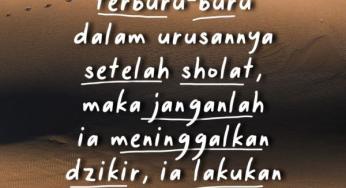 terburu-buru
dalam urusannya
setelah sholat,
maka janganlah
ia meninggalkan
dzikir, ia lakukan